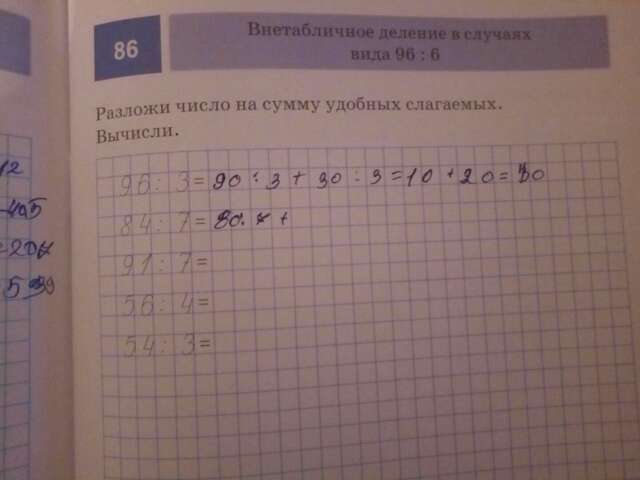 86
Внетабличное деление в случаях
вида 96 : 6
Разложи число на сумму удобных слагаемых.
Вычисли.
96 : 3 = 90 : 3 + 30 : 3 = 10 + 20 = 30
84 : 7 = 80 : 7 +
91 : 7 =
56 : 4 =
54 : 3 =
12
405
207